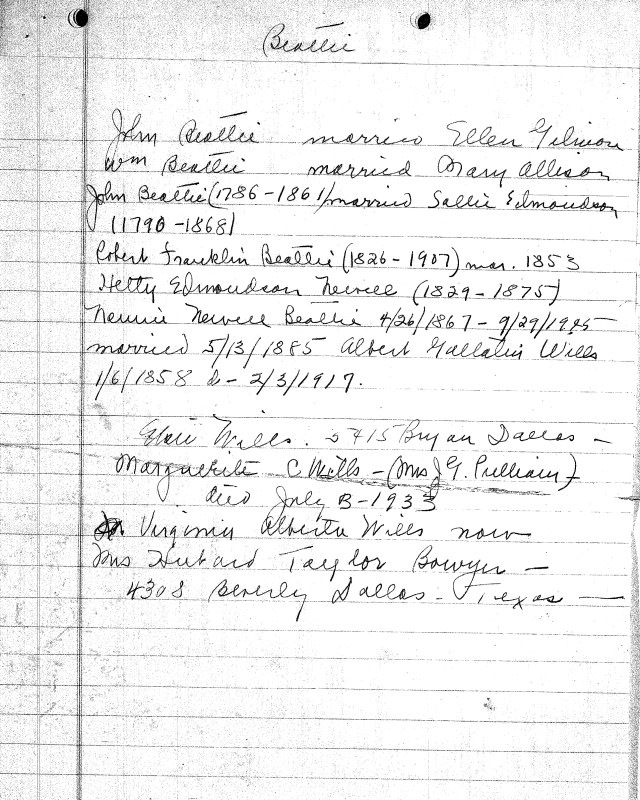 Beattie
John Beattie married Ellen Gilmore
Wm Beattie married Mary Allison
John Beattie (1786-1861) married Sallie Edmondson
(1790-1868)
Robert Franklin Beattie (1826-1907) mar. 1853
Hetty Edmondson Newell (1829-1875)
Nannie Newell Beattie 4/26/1867 - 9/29/19
married 5/13/1885 Albert Gallatin Wills
1/6/1858 d- 2/3/1917.
Wills. 5415 Bryan Dallas -
Marguerite C Wills - (Mrs J G. Pulliam)
died July 1933
Virginia Alberta Wills now
Mrs Hubard Taylor Bowyer -
4308 Beverly Dallas - Texas -